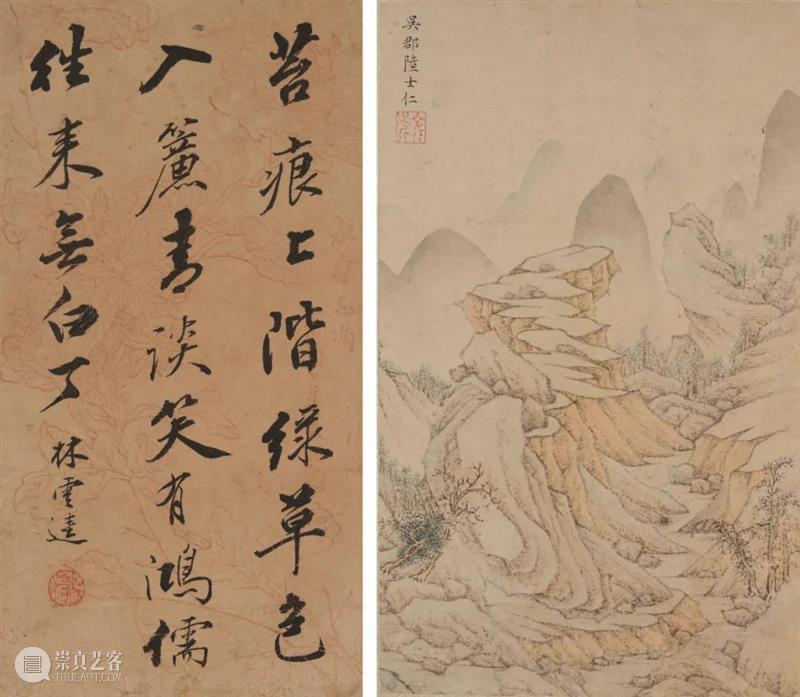 苔痕上階綠草色
入簾青談笑有鴻儒
往来無白丁
林雲
吳郡陸士仁
崇真艺客
TRUEART.COM